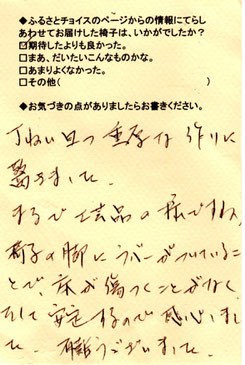 ◆ふるさとチョイスのページからの情報にてらし
あわせてお届けした椅子は、いかがでしたか？
☑期待したよりも良かった。
□まあ、だいたいこんなものかな。
□あまりよくなかった。
□その他(　　　　　　　　　　)
◆お気づきの点がありましたらお書きください。
丁ねい且つ重厚な作りに
驚きました。
まるで工芸品の様ですね。
椅子の脚にラバーがついているこ
とで、床が傷つくことがなく
そして安定するので感心しまし
た。有難うございました。